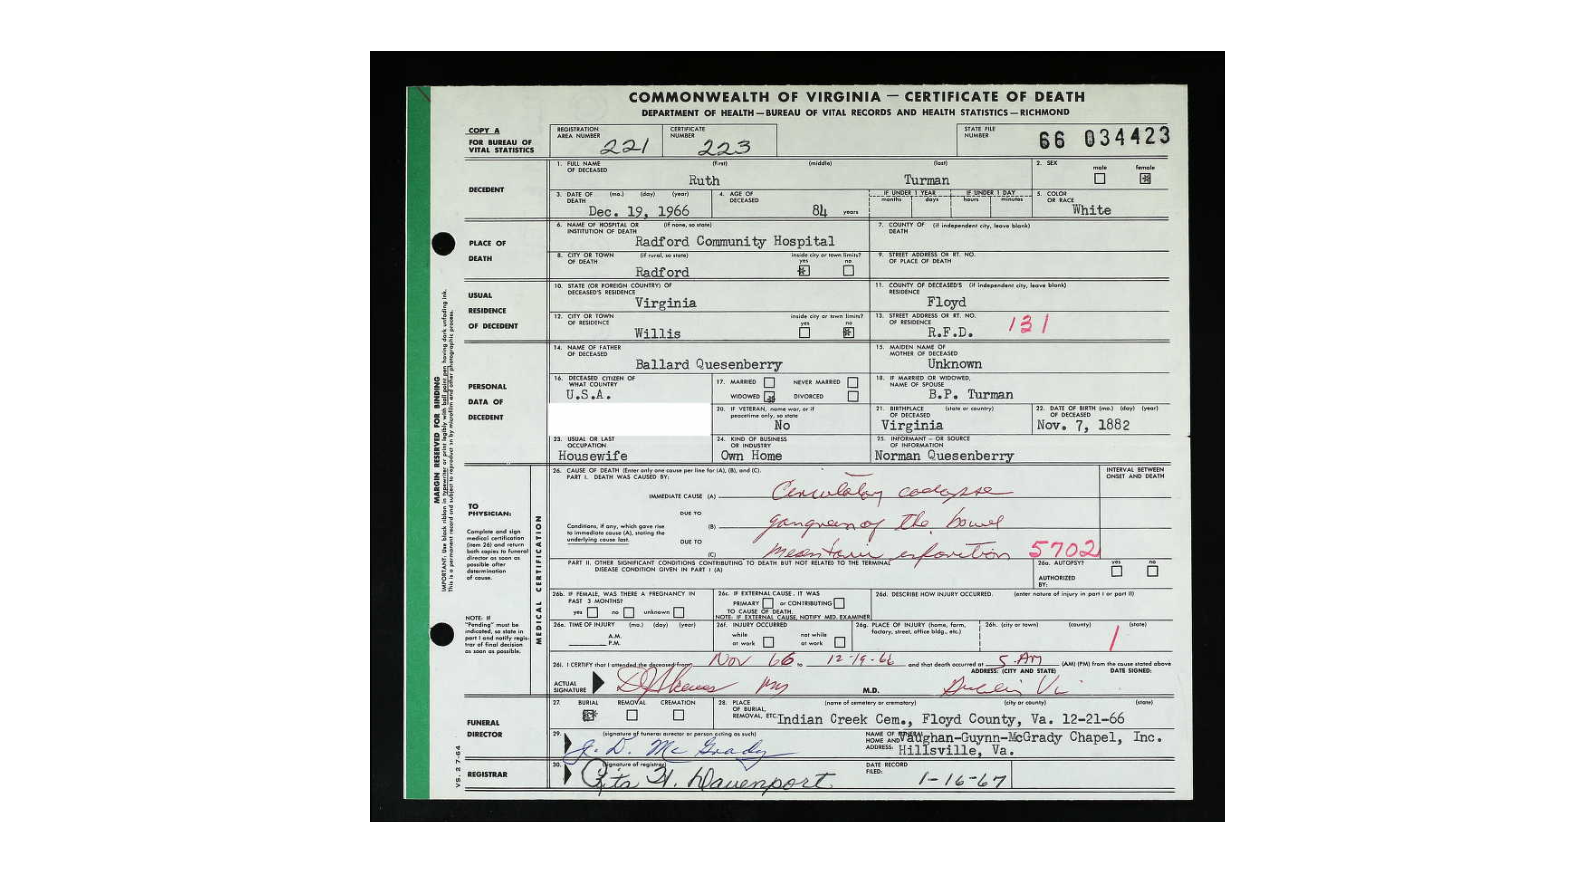 COMMONWEALTH OF VIRGINIA — CERTIFICATE OF DEATH
DEPARTMENT OF HEALTH—BUREAU OF VITAL RECORDS AND HEALTH STATISTICS—RICHMOND
COPY A
FOR BUREAU OF
VITAL STATISTICS
REGISTRATION AREA NUMBER 221
CERTIFICATE NUMBER 223
STATE FILE NUMBER 66 034423
DECEDENT
1. FULL NAME OF DECEASED (first) (middle) (last)
Ruth Turman
2. SEX male female
3. DATE OF DEATH (mo.) (day) (year)
Dec. 19, 1966
4. AGE OF DECEASED
84 years
IF UNDER 1 YEAR months days
IF UNDER 1 DAY hours minutes
5. COLOR OR RACE
White
PLACE OF
DEATH
6. NAME OF HOSPITAL OR INSTITUTION OF DEATH (if none, so state)
Radford Community Hospital
7. COUNTY OF DEATH (if independent city, leave blank)
8. CITY OR TOWN OF DEATH (if rural, so state)
Radford
inside city or town limits? yes no
9. STREET ADDRESS OR RT. NO. OF PLACE OF DEATH
USUAL
RESIDENCE
OF DECEDENT
10. STATE (OR FOREIGN COUNTRY) OF DECEASED'S RESIDENCE
Virginia
11. COUNTY OF DECEASED'S RESIDENCE (if independent city, leave blank)
Floyd
12. CITY OR TOWN OF RESIDENCE
Willis
inside city or town limits? yes no
13. STREET ADDRESS OR RT. NO. OF RESIDENCE
R.F.D. 131
PERSONAL
DATA OF
DECEDENT
14. NAME OF FATHER OF DECEASED
Ballard Quesenberry
15. MAIDEN NAME OF MOTHER OF DECEASED
Unknown
16. DECEASED CITIZEN OF WHAT COUNTRY
U.S.A.
17. MARRIED NEVER MARRIED
WIDOWED DIVORCED
18. IF MARRIED OR WIDOWED, NAME OF SPOUSE
B.P. Turman
20. IF VETERAN, name war, or if peacetime only, so state
No
21. BIRTHPLACE OF DECEASED (state or country)
Virginia
22. DATE OF BIRTH OF DECEASED (mo.) (day) (year)
Nov. 7, 1882
23. USUAL OR LAST OCCUPATION
Housewife
24. KIND OF BUSINESS OR INDUSTRY
Own Home
25. INFORMANT — OR SOURCE OF INFORMATION
Norman Quesenberry
MARGIN RESERVED FOR BINDING
TO
PHYSICIAN:
Complete and sign
medical certification
(item 26) and return
both copies to funeral
director as soon as
possible after
determination
of cause.
NOTE: If
"Pending" must be
indicated, so state in
part I and notify regis-
trar of final decision
as soon as possible.
MEDICAL CERTIFICATION
26. CAUSE OF DEATH (Enter only one cause per line for (A), (B), and (C).
PART I. DEATH WAS CAUSED BY:
INTERVAL BETWEEN ONSET AND DEATH
IMMEDIATE CAUSE (A) Circulatory collapse
DUE TO
Conditions, if any, which gave rise
to immediate cause (A), stating the
underlying cause last.
(B) gangreen of the bowel
DUE TO
(C) 5702
PART II. OTHER SIGNIFICANT CONDITIONS CONTRIBUTING TO DEATH BUT NOT RELATED TO THE TERMINAL
DISEASE CONDITION GIVEN IN PART I (A)
26a. AUTOPSY? yes no
AUTHORIZED BY:
26b. IF FEMALE, WAS THERE A PREGNANCY IN PAST 3 MONTHS?
yes no unknown
26c. IF EXTERNAL CAUSE, IT WAS
PRIMARY or CONTRIBUTING
TO CAUSE OF DEATH.
NOTE: IF EXTERNAL CAUSE, NOTIFY MED. EXAMINER
26d. DESCRIBE HOW INJURY OCCURRED. (enter nature of injury in part I or part II)
26e. TIME OF INJURY (mo.) (day) (year)
A.M.
P.M.
26f. INJURY OCCURRED
while at work not while at work
26g. PLACE OF INJURY (home, farm, factory, street, office bldg., etc.)
26h. (city or town) (county) (state)
26i. I CERTIFY that I attended the deceased from Nov 66 to 12-19-66 and that death occurred at 5 AM (AM) (PM) from the cause stated above
ADDRESS: (CITY AND STATE) DATE SIGNED:
ACTUAL SIGNATURE
M.D.
FUNERAL
DIRECTOR
27. BURIAL REMOVAL CREMATION
28. PLACE OF BURIAL, REMOVAL, ETC. (name of cemetery or crematory) (city or county) (state)
Indian Creek Cem., Floyd County, Va. 12-21-66
29. (signature of funeral director or person acting as such)
J. D. McGrady
NAME OF FUNERAL HOME AND ADDRESS:
Vaughan-Guynn-McGrady Chapel, Inc.
Hillsville, Va.
REGISTRAR
30. (signature of registrar)
Rita H. Davenport
DATE RECORD FILED:
1-16-67